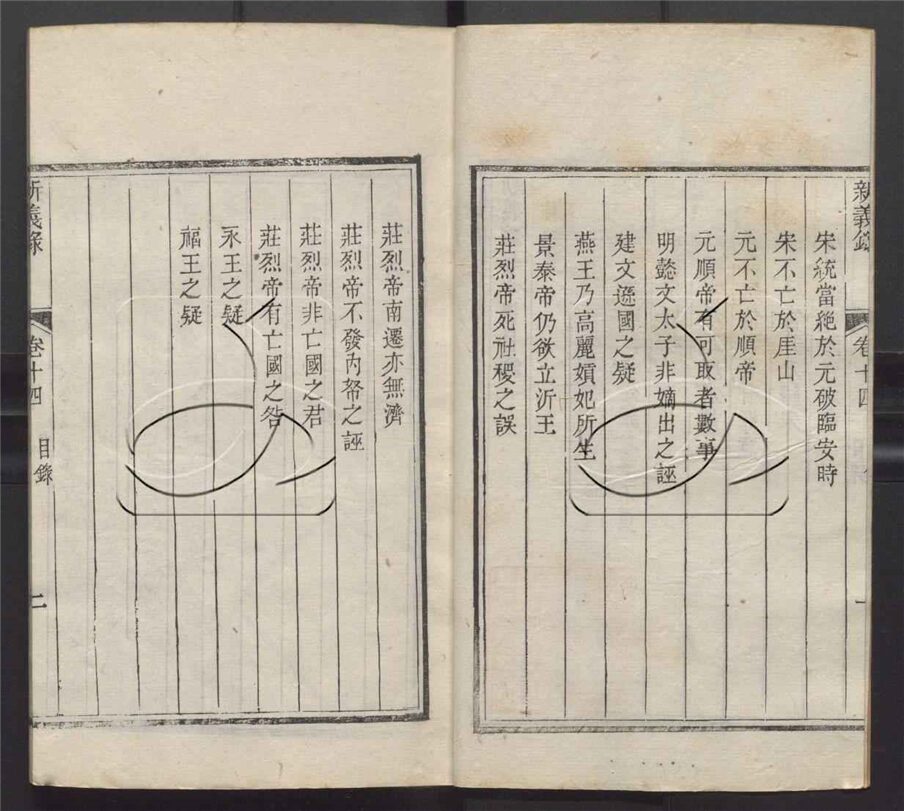 新義錄
卷十四
一
宋統當絕於元破臨安時
宋不亡於厓山
元不亡於順帝
元順帝有可取者數事
明懿文太子非嫡出之誣
建文遜國之疑
燕王乃高麗碽妃所生
景泰帝仍欲立沂王
莊烈帝死社稷之誤
莊烈帝南遷亦無濟
莊烈帝不發內帑之誣
莊烈帝非亡國之君
莊烈帝有亡國之咎
永王之疑
福王之疑
新義錄
卷十四
目錄
二